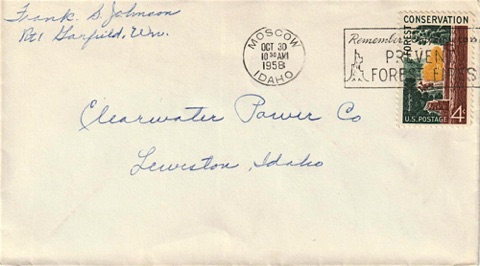 Frank S Johnson
Rt 1 Garfield, Wn.
MOSCOW
OCT 30
10 30 AM
1958
IDAHO
Remember
PREVENT
FOREST FIRES
FOREST CONSERVATION
U.S. POSTAGE 4¢
Clearwater Power Co
Lewiston, Idaho